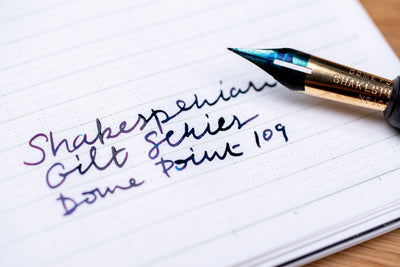 Shakespenian
Gilt Series
Dome Point 109
SHAKESPE